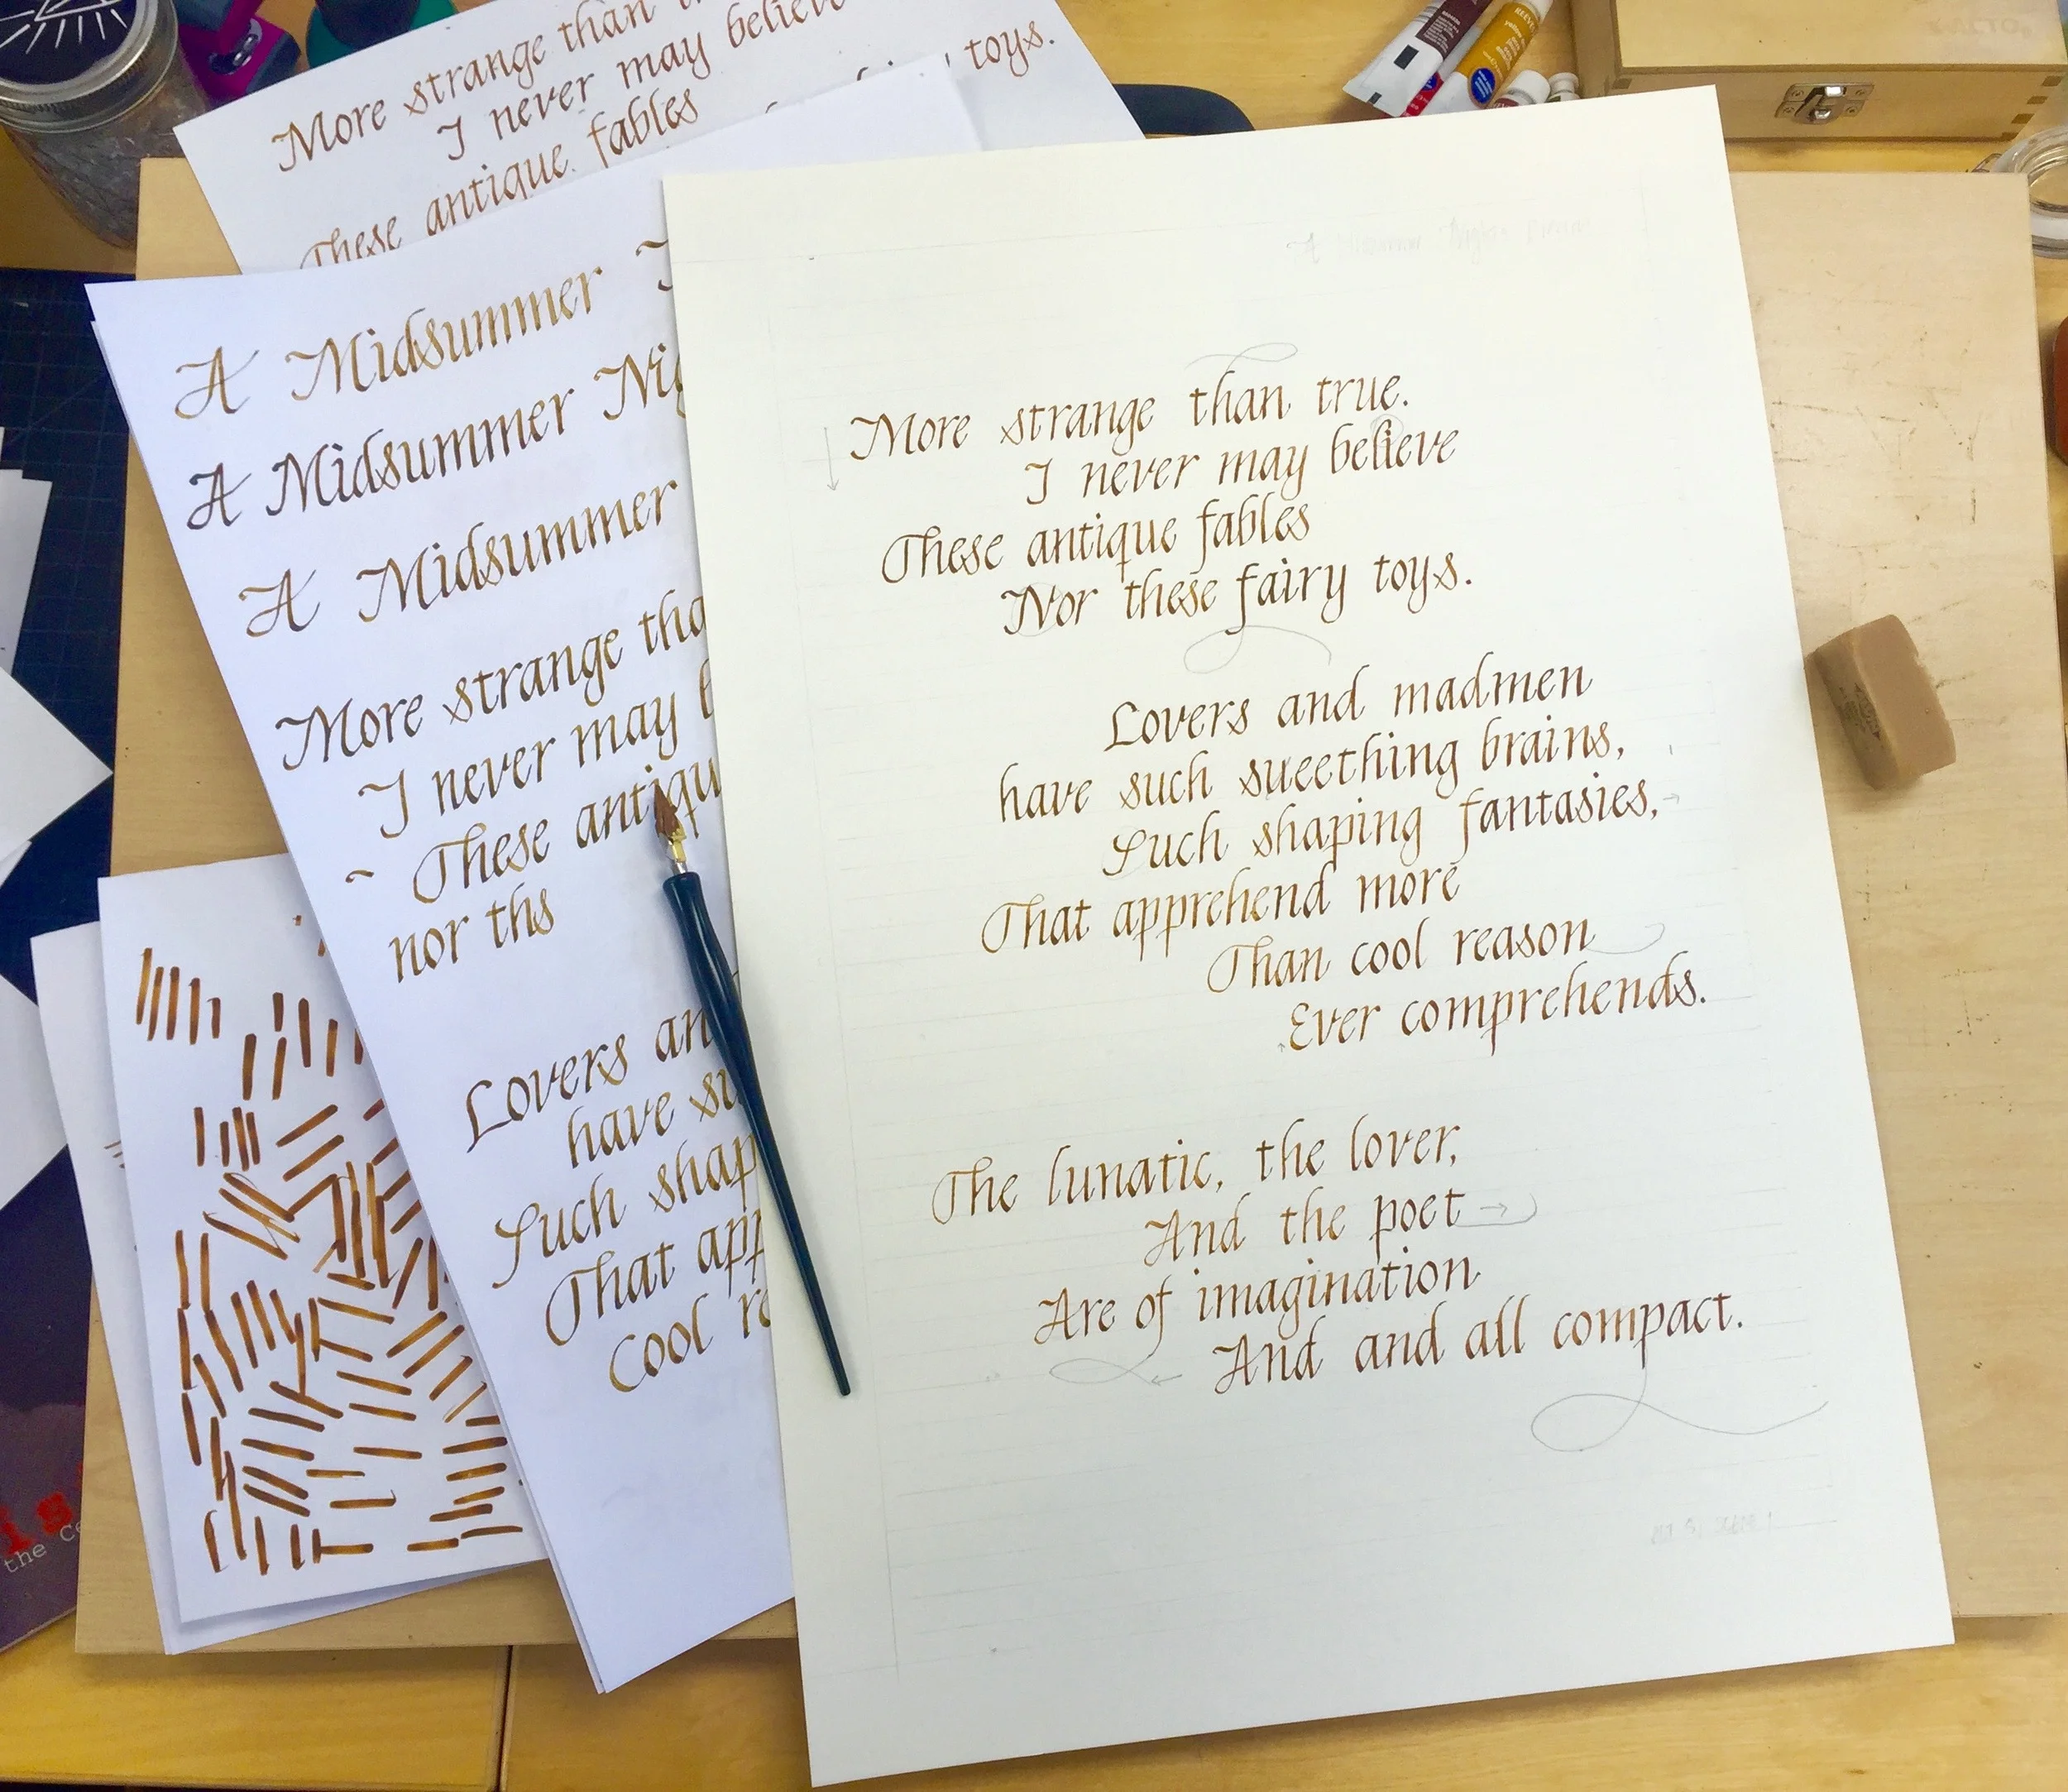 More strange than
I never may believe
These antique fables
toys.
A Midsummer
A Midsummer Nig
A Midsummer
More strange tha
I never may b
~ These antiqu
nor ths
Lovers an
have su
Such shap
That app
Cool re
A Midsummer Nights Dream
More strange than true.
I never may believe
These antique fables
Nor these fairy toys.
Lovers and madmen
have such sueething brains,
Such shaping fantasies,
That apprehend more
Than cool reason
Ever comprehends.
The lunatic, the lover,
And the poet
Are of imagination
And and all compact.
ACT 5, SCENE 1
the Ce